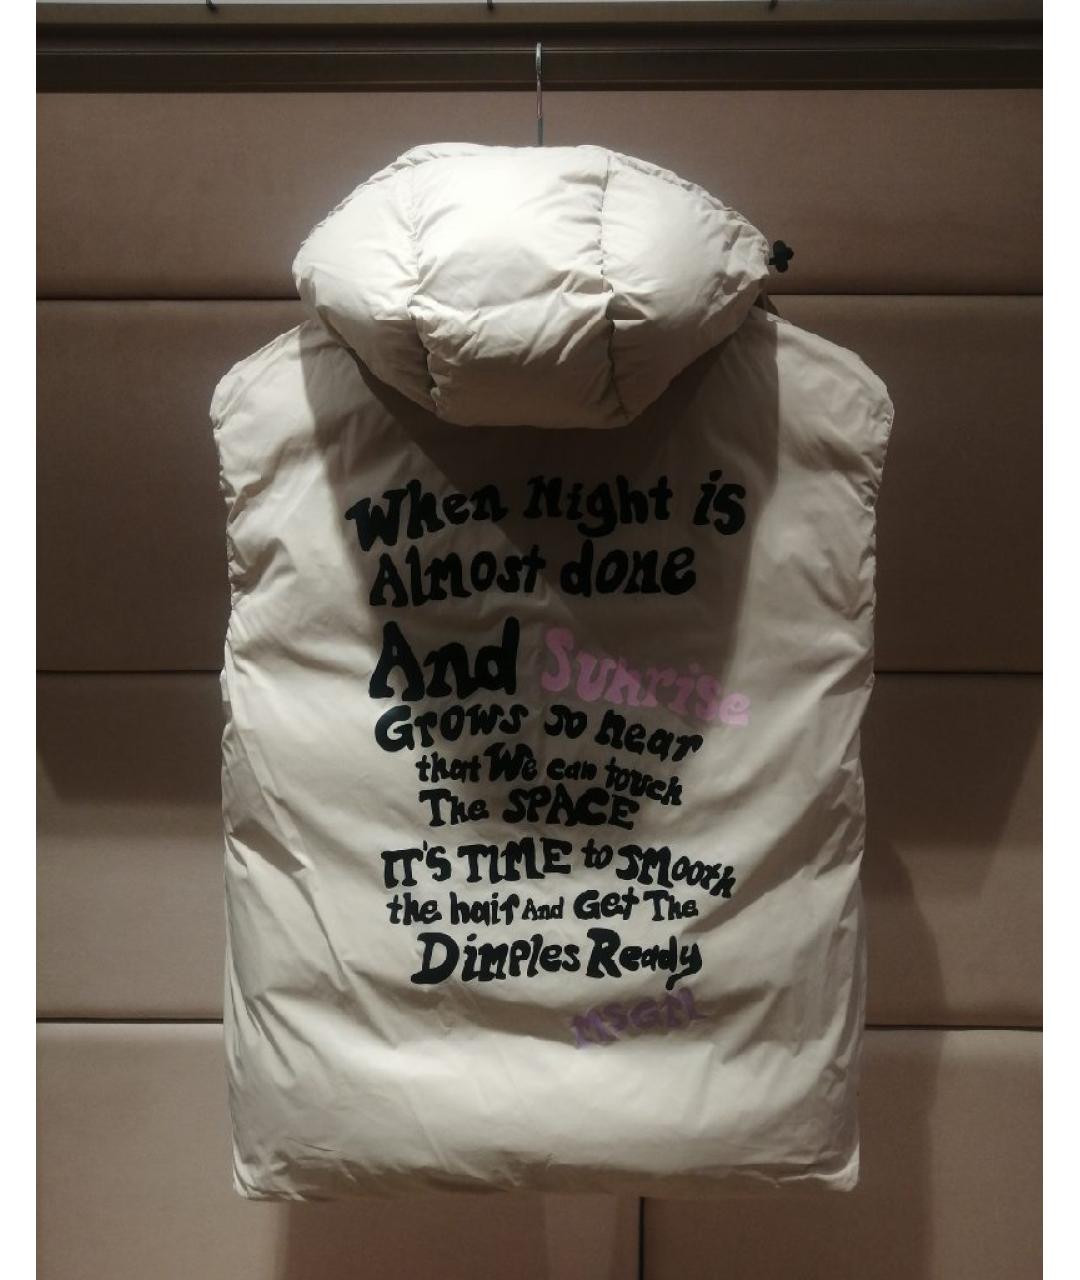 When Night is
Almost done
And Sunrise
Grows so near
that We can touch
The SPACE
IT'S TIME to SMooth
the hair And Get The
Dimples Ready
MSGM